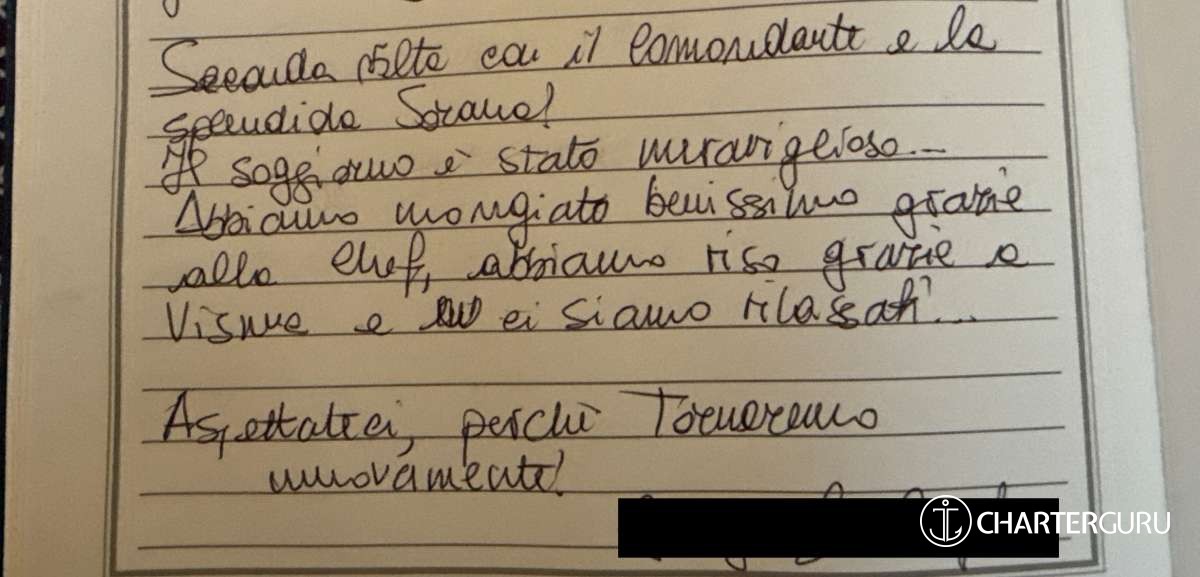 Seconda volta con il comandante e la
splendida Sorana!
Il soggiorno è stato meraviglioso...
Abbiamo mangiato benissimo grazie
alla Chef, abbiamo riso grazie a
e ci siamo rilassati...
Aspettateci, perchè Torneremo
nuovamente!
CHARTERGURU